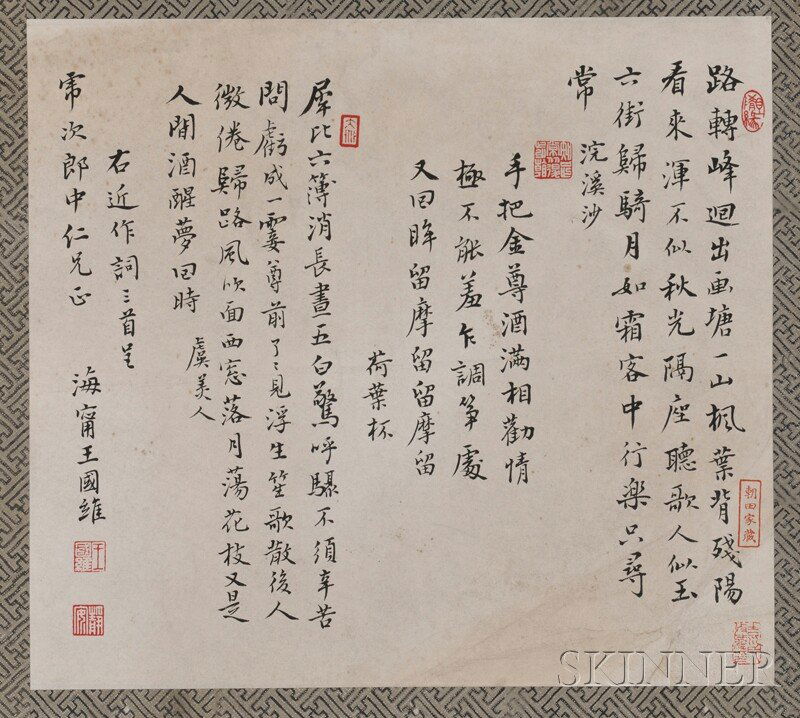 路轉峰迴出画塘一山楓葉背殘陽
看來渾不似秋光隔座聽歌人似玉
六街歸騎月如霜客中行樂只尋
常　浣溪沙
手把金尊酒滿相勸情
極不能羞乍調箏處
又回眸留摩留留摩留
荷葉杯
犀比六簿消長晝五白驚呼驟不須辛苦
問虧成一霎尊前了了見浮生笙歌散後人
微倦歸路風吹面西窓落月蕩花枝又是
人間酒醒夢回時　虞美人
右近作詞三首呈
霈次郎中仁兄正
海甯王國維
朝田家藏
王國維
靜安
SKINNER